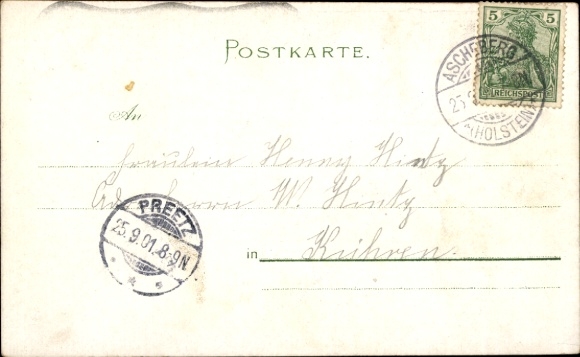 POSTKARTE.
5 5
REICHSPOST
ASCHEBERG
25
(HOLSTEIN)
An
Fräulein Henny Hintz
Ad. Herrn W. Hintz
in Kühren.
PREETZ
25.9.01.8-9N